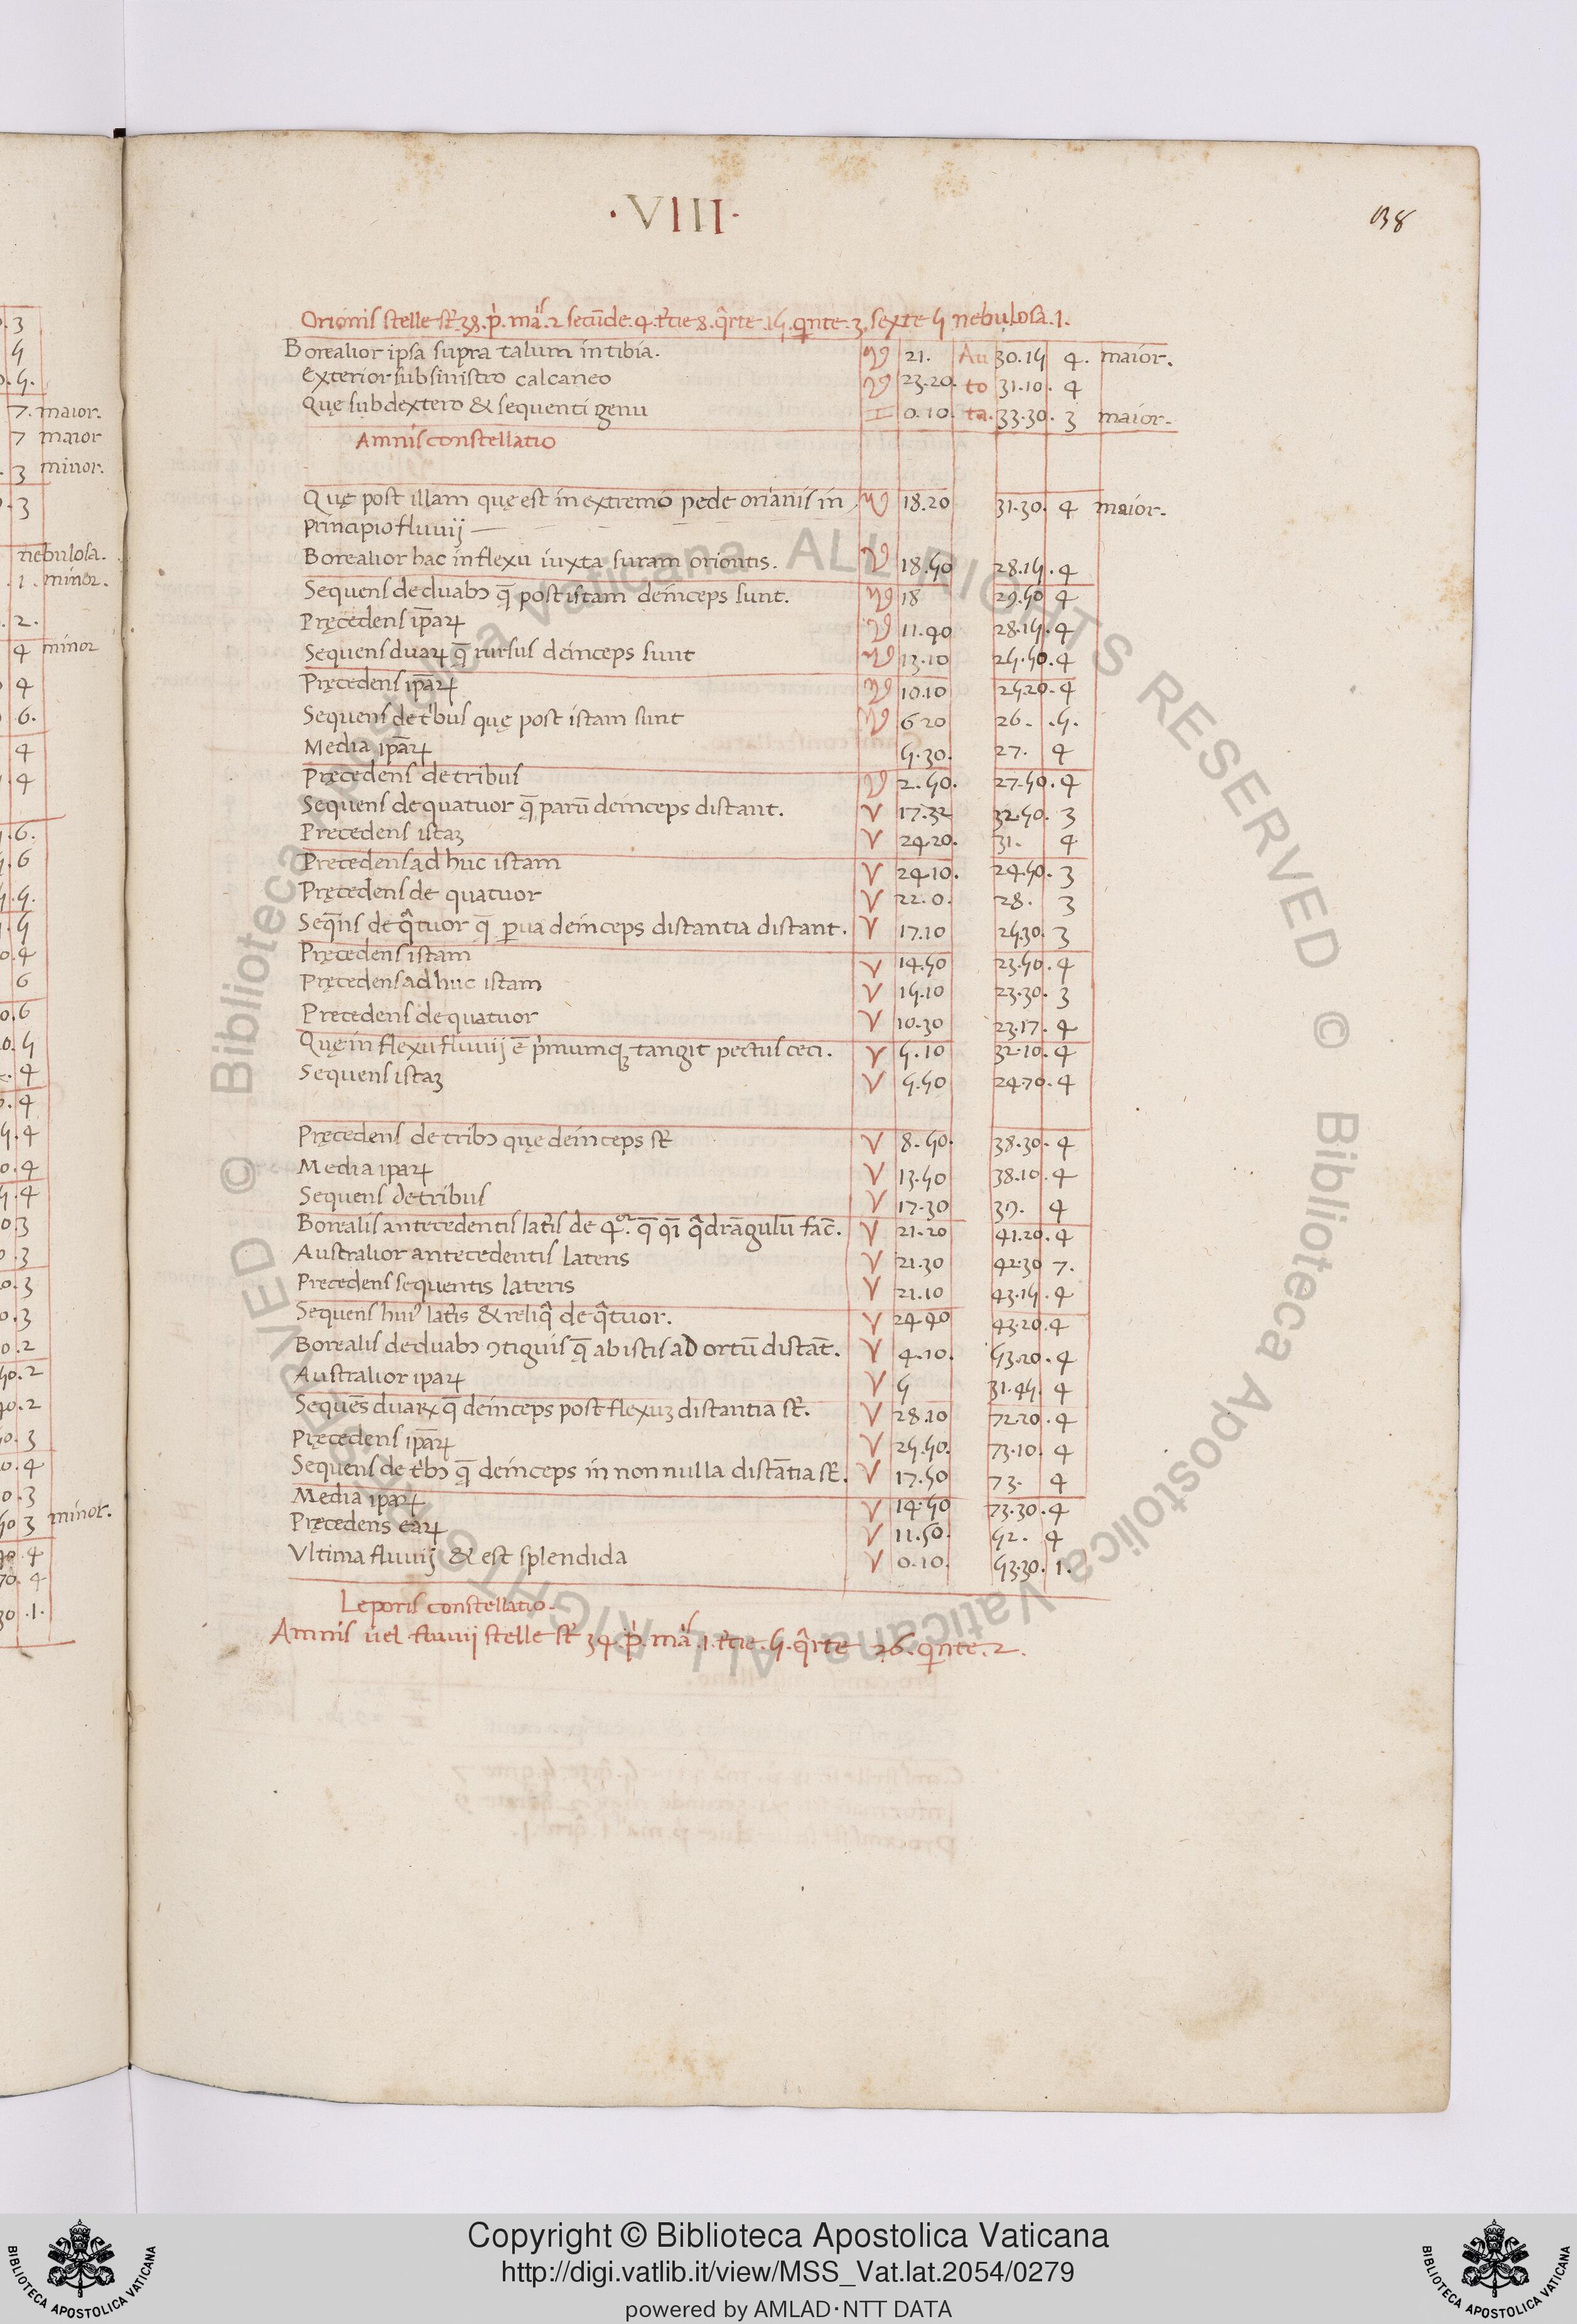 · VIII ·
138
Orionis stelle st̄. 38. p̀. mā.ˢ 2 secūde. 4. t̄cie 8. q̄rte. 15. qnte. 3. sexte 5 nebulosa. 1.
Borealior ipsa supra talum in tibia. ♉ 21. Au 30.15 4. maior.
Exterior sub sinistro calcaneo ♉ 23.20. to 31.10. 4
Quę sub dextero & sequenti genu ♊ 0.10. ta. 33.30. 3 maior.
Amnis constellatio
Quę post illam quę est in extremo pede orianis in ♉ 18.20 31.30. 4 maior.
principio fluuij
Borealior hac in flexu iuxta suram oriontis. ♉ 18.50 28.15. 4
Sequens de duabꝰ q̄ post istam deinceps sunt. ♉ 18 29.50 4
Pręcedens ip̄aꝝ ♉ 11.40 28.15. 4
Sequens duaꝝ q̄ rursus deinceps sunt ♉ 13.10 25.50. 4
Pręcedens ip̄aꝝ ♉ 10.10 25.20. 4
Sequens de t'bus quę post istam sunt ♉ 6 20 26. . 5.
Media ip̄aꝝ 5.30. 27. 4
Pręcedens de tribus ♉ 2.50. 27.50. 4
Sequens de quatuor q̄ parū deinceps distant. ♈ 17.32 32.50. 3
Precedens istaꝫ ♈ 24.20. 31. 4
Precedens ad huc istam ♈ 24.10. 24.50. 3
Pręcedens de quatuor ♈ 22.0. 28. 3
Seq̄ns de q̄tuor q̄ ꝑua deinceps distantia distant. ♈ 17.10 25.30. 3
Pręcedens istam ♈ 14.50 23.50. 4
Pręcedens ad huc istam ♈ 15.10 23.30. 3
Precedens de quatuor ♈ 10.30 23.17. 4
Quę in flexu fluuij ē p̀mumqꝫ tangit pectus ceci. ♈ 5.10 32.10. 4
Sequens istaꝫ ♈ 5.50 24.70. 4
Pręcedens de tribꝰ quę deinceps st̄ ♈ 8.50. 38.30. 4
Media ipaꝝ ♈ 13.50 38.10. 4
Sequens de tribus ♈ 17.30 39. 4
Borealis antecedentis lat̄is de 4.ᵒʳ q̄ q̄i q̄drāgulū fac̄. ♈ 21.20 41.20. 4
Australior antecedentis lateris ♈ 21.30 42.30 7.
Precedens sequentis lateris ♈ 21.10 43.15. 4
Sequens huiꝰ lat̄is & reliq̄ de q̄tuor. ♈ 24.40 43.20. 4
Borealis de duabꝰ ꝯtiguis q̄ ab istis ad ortū distāt. ♈ 4.10. 53.20. 4
Australior ipaꝝ ♈ 5 31.45. 4
Sequēs duaꝝ q̄ deinceps post flexuꝫ distantia st̄. ♈ 28.10 72.20. 4
Pręcedens ip̄aꝝ ♈ 25.50. 73.10. 4
Sequens de t'bꝰ q̄ deinceps in non nulla distātia st̄. ♈ 17.50 73. 4
Media ipaꝝ ♈ 14.50 73.30. 4
Pręcedens eaꝝ ♈ 11.50. 52. 4
Vltima fluuij & est splendida ♈ 0.10. 53.30. 1.
Leporis constellatio.
Amnis uel fluuij stelle st̄ 34. p̀. mā.ˢ 1. t̄cie. 5. q̄rte 26. qnte. 2.
Copyright © Biblioteca Apostolica Vaticana
http://digi.vatlib.it/view/MSS_Vat.lat.2054/0279
powered by AMLAD·NTT DATA
BIBLIOTECA APOSTOLICA VATICANA
BIBLIOTECA APOSTOLICA VATICANA
© Biblioteca Apostolica Vaticana ALL RIGHTS RESERVED © Biblioteca Apostolica Vaticana ALL RIGHTS RESERVED